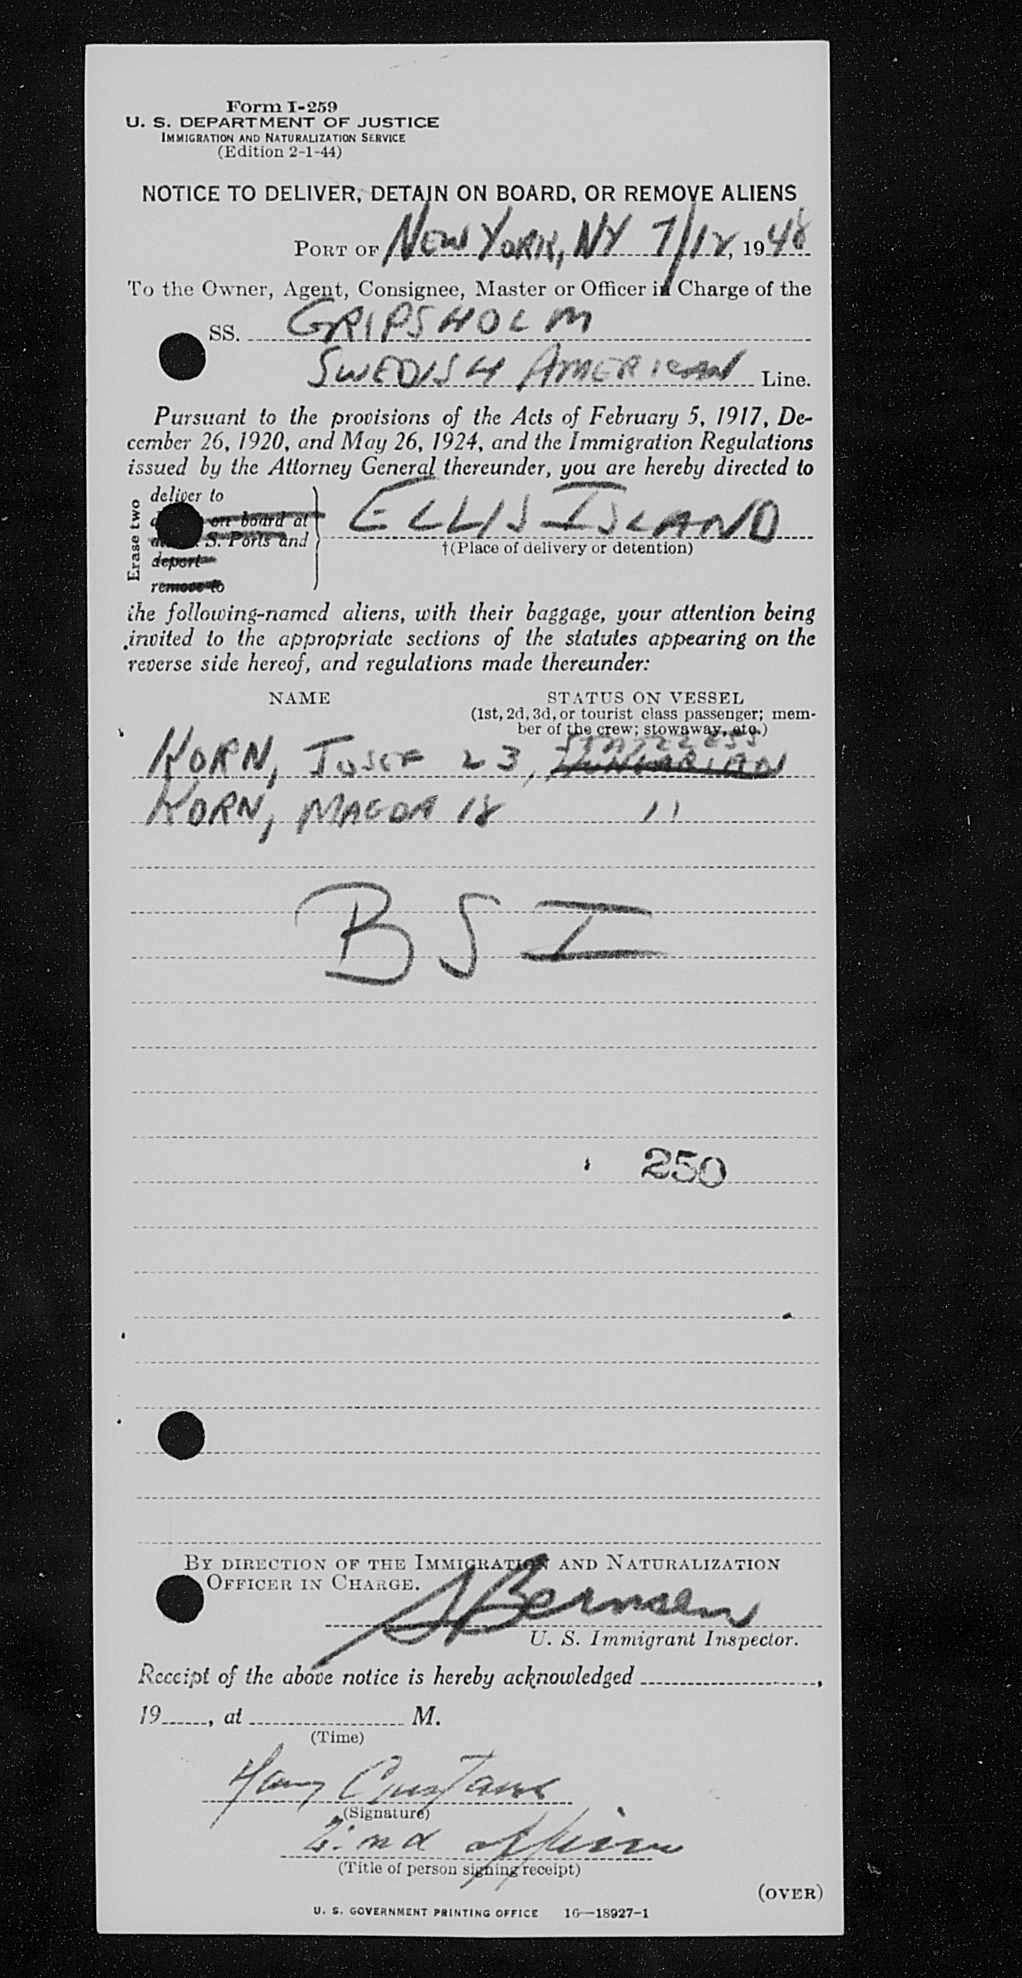 Form I-259
U. S. DEPARTMENT OF JUSTICE
IMMIGRATION AND NATURALIZATION SERVICE
(Edition 2-1-44)
NOTICE TO DELIVER, DETAIN ON BOARD, OR REMOVE ALIENS
PORT OF NEW YORK, NY 7/12, 1948
To the Owner, Agent, Consignee, Master or Officer in Charge of the
SS. GRIPSHOLM
SWEDISH AMERICAN Line.
Pursuant to the provisions of the Acts of February 5, 1917, De-
cember 26, 1920, and May 26, 1924, and the Immigration Regulations
issued by the Attorney General thereunder, you are hereby directed to
Erase two
deliver to
on board at
S. Ports and
deport
remove to
ELLIS ISLAND
†(Place of delivery or detention)
the following-named aliens, with their baggage, your attention being
invited to the appropriate sections of the statutes appearing on the
reverse side hereof, and regulations made thereunder:
NAME STATUS ON VESSEL
(1st, 2d, 3d, or tourist class passenger; mem-
ber of the crew; stowaway, etc.)
STATELESS
KORN, JOSEF 23, HUNGARIAN
KORN, MAGDA 18 11
BSI
250
BY DIRECTION OF THE IMMIGRATION AND NATURALIZATION
OFFICER IN CHARGE.
U. S. Immigrant Inspector.
Receipt of the above notice is hereby acknowledged ,
19 , at M.
(Time)
Harry
(Signature)
2:nd officer
(Title of person signing receipt)
(OVER)
U. S. GOVERNMENT PRINTING OFFICE 16—18927-1